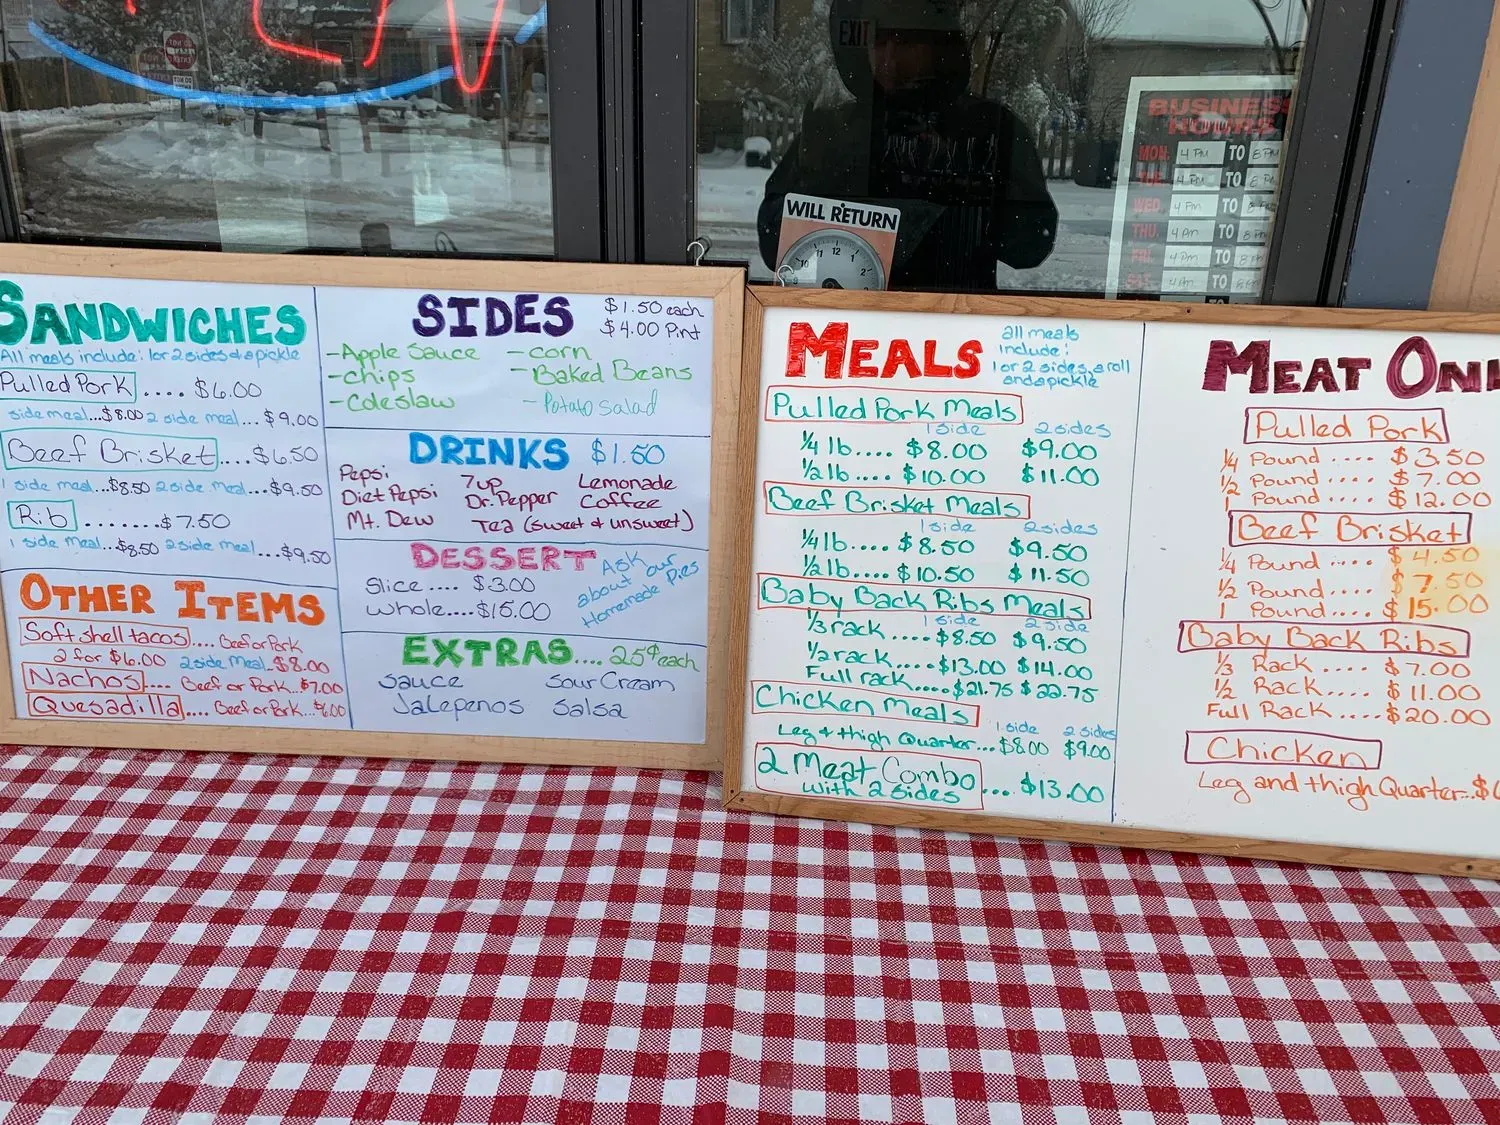 WILL RETURN
10 11 12 1 2
EXIT
BUSINESS
HOURS
MON. 4 PM TO 8 PM
TUE. 4 PM TO 8 PM
WED. 4 PM TO 8 PM
THU. 4 PM TO 8 PM
FRI. 4 PM TO 8 PM
SAT. 4 PM TO
TO
SANDWICHES
All meals include: 1 or 2 sides & a pickle
Pulled Pork .... $6.00
side meal...$8.00 2 side meal... $9.00
Beef Brisket....$6.50
1 side meal...$8.50 2 side meal...$9.50
Rib .......$7.50
1 side meal...$8.50 2 side meal...$9.50
OTHER ITEMS
Soft shell tacos.... Beef or Pork
2 for $6.00 2 side meal..$8.00
Nachos.... Beef or Pork...$7.00
Quesadilla.... Beef or Pork...$6.00
SIDES $1.50 each
$4.00 Pint
-Apple Sauce -corn
-chips -Baked Beans
-Coleslaw -Potato salad
DRINKS $1.50
Pepsi 7up Lemonade
Diet Pepsi Dr. Pepper Coffee
Mt. Dew Tea (sweet & unsweet)
DESSERT
Slice .... $3.00
whole....$15.00
Ask
about our
Homemade Pies
EXTRAS.... 25¢ each
Sauce Sour Cream
Jalepenos Salsa
MEALS
all meals
include:
1 or 2 sides, a roll
and a pickle
Pulled Pork Meals
1 side 2 sides
1/4 lb.... $8.00 $9.00
1/2 lb.... $10.00 $11.00
Beef Brisket Meals
1 side 2 sides
1/4 lb.... $8.50 $9.50
1/2 lb.... $10.50 $11.50
Baby Back Ribs Meals
1 side 2 side
1/3 rack ....$8.50 $9.50
1/2 rack.....$13.00 $14.00
Full rack.....$21.75 $22.75
Chicken Meals
1 side 2 sides
Leg & thigh Quarter...$8.00 $9.00
2 Meat Combo
with 2 sides ... $13.00
MEAT ONL
Pulled Pork
1/4 Pound .... $3.50
1/2 Pound .... $7.00
1 Pound .... $12.00
Beef Brisket
1/4 Pound .... $4.50
1/2 Pound .... $7.50
1 Pound .... $15.00
Baby Back Ribs
1/3 Rack .... $7.00
1/2 Rack.... $11.00
Full Rack .... $20.00
Chicken
Leg and thigh Quarter..$